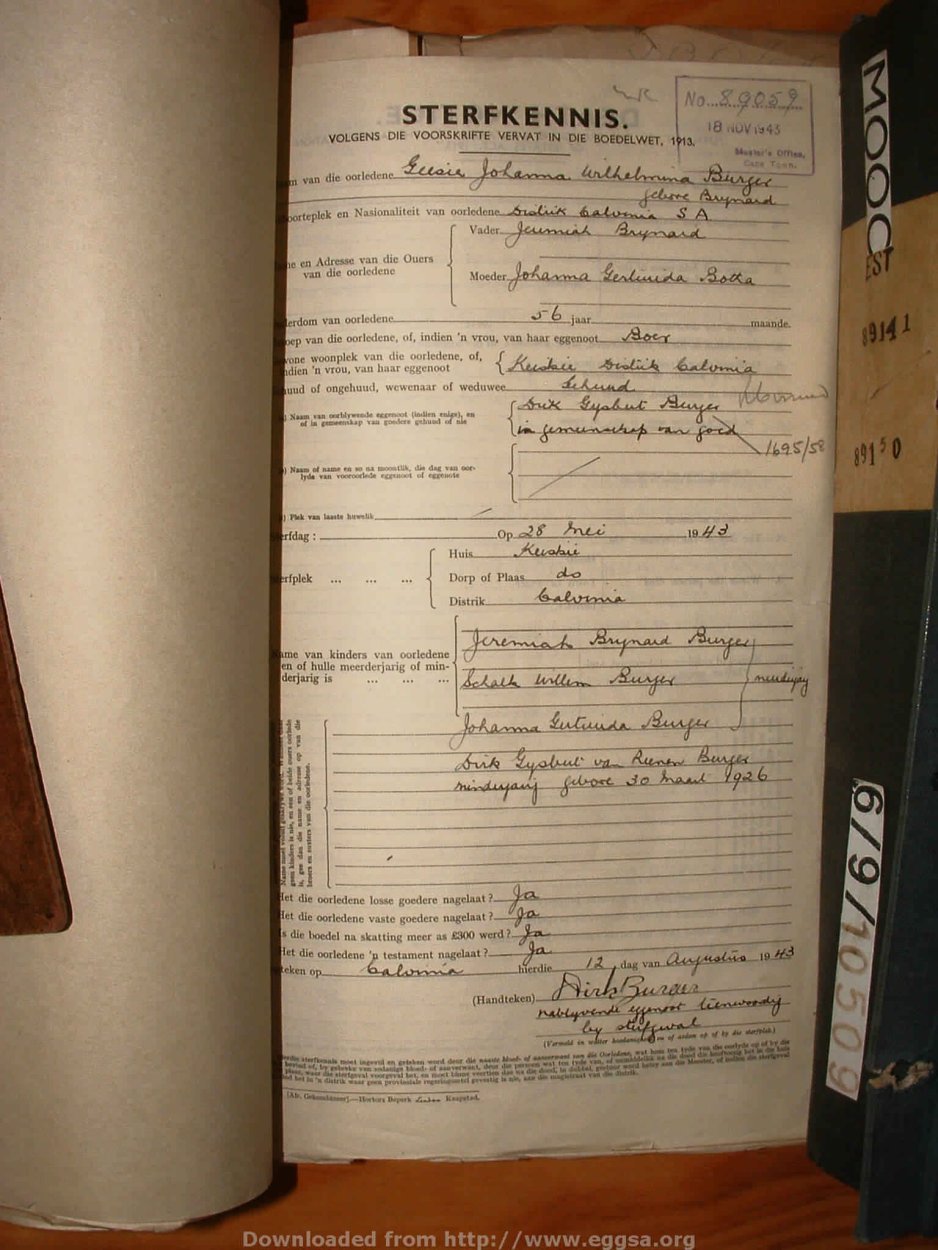 STERFKENNIS.
VOLGENS DIE VOORSKRIFTE VERVAT IN DIE BOEDELWET, 1913.
No. 89059
18 NOV 1943
Master's Office,
Cape Town.
van die oorledene Geesie Johanna Wilhelmina Burger
gebore Brynard
oorteplek en Nasionaliteit van oorledene Distrik Calvinia S A
Vader Jeremiah Brynard
me en Adresse van die Ouers
van die oorledene
Moeder Johanna Gertruida Botha
derdom van oorledene 56 jaar maande.
oep van die oorledene, of, indien 'n vrou, van haar eggenoot Boer
wone woonplek van die oorledene, of,
ndien 'n vrou, van haar eggenoot
Keiskie Distrik Calvinia
huud of ongehuud, wewenaar of weduwee Gehuud
) Naam van oorblywende eggenoot (indien enige), en
of in gemeenskap van goedere gehuud of nie
Dirk Gysbert Burger
in gemeenskap van goed
1695/58
) Naam of name en so na moontlik, die dag van oor-
lyde van vooroorlede eggenoot of eggenote
) Plek van laaste huwelik
erfdag : Op 28 Mei 1943
Huis Keiskie
erfplek ... ... ... Dorp of Plaas do
Distrik Calvinia
ame van kinders van oorledene
en of hulle meerderjarig of min-
derjarig is ... ... ...
Jeremiah Brynard Burger
Schalk Willem Burger
Johanna Gertruida Burger
Dirk Gysbert van Reenen Burger
minderjarig gebore 30 Maart 1926
geen kinders is nie, en een of beide ouers oorlede
is, gee dan die name en adresse op van die
broers en susters van die oorledene.
Het die oorledene losse goedere nagelaat? Ja
Het die oorledene vaste goedere nagelaat? Ja
Is die boedel na skatting meer as £300 werd? Ja
Het die oorledene 'n testament nagelaat? Ja
teken op Calvinia hierdie 12 dag van Augustus 1943
(Handteken) Dirk Burger
nablywende eggenoot teenwoordig
by sterfgeval
(Vermeld in watter hoedanigheid en of anders op of by die sterfplek)
ind het in 'n distrik waar geen provinsiale regeringsetel gevestig is nie, aan die magistraat van die distrik.
Hortors Beperk Kaapstad.
MOOC
EST
89141
89150
6/9/10509
Downloaded from http://www.eggsa.org